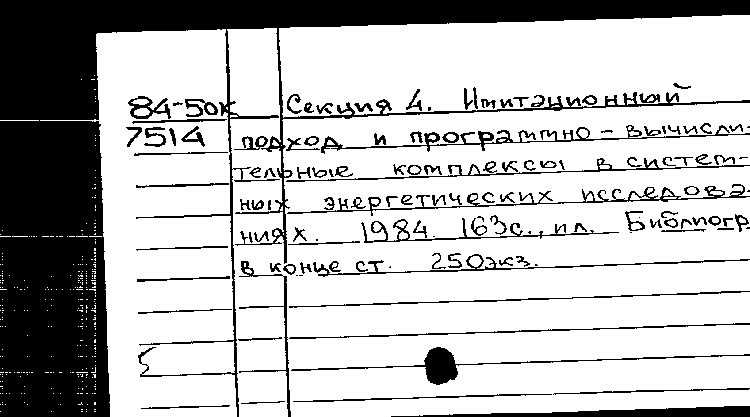 84-50к Секция 4. Имитационный
7514 подход и программно-вычисли-
тельные комплексы в систем-
ных энергетических исследова-
ниях. 1984. 163с., ил. Библиогр
в конце ст. 250экз.